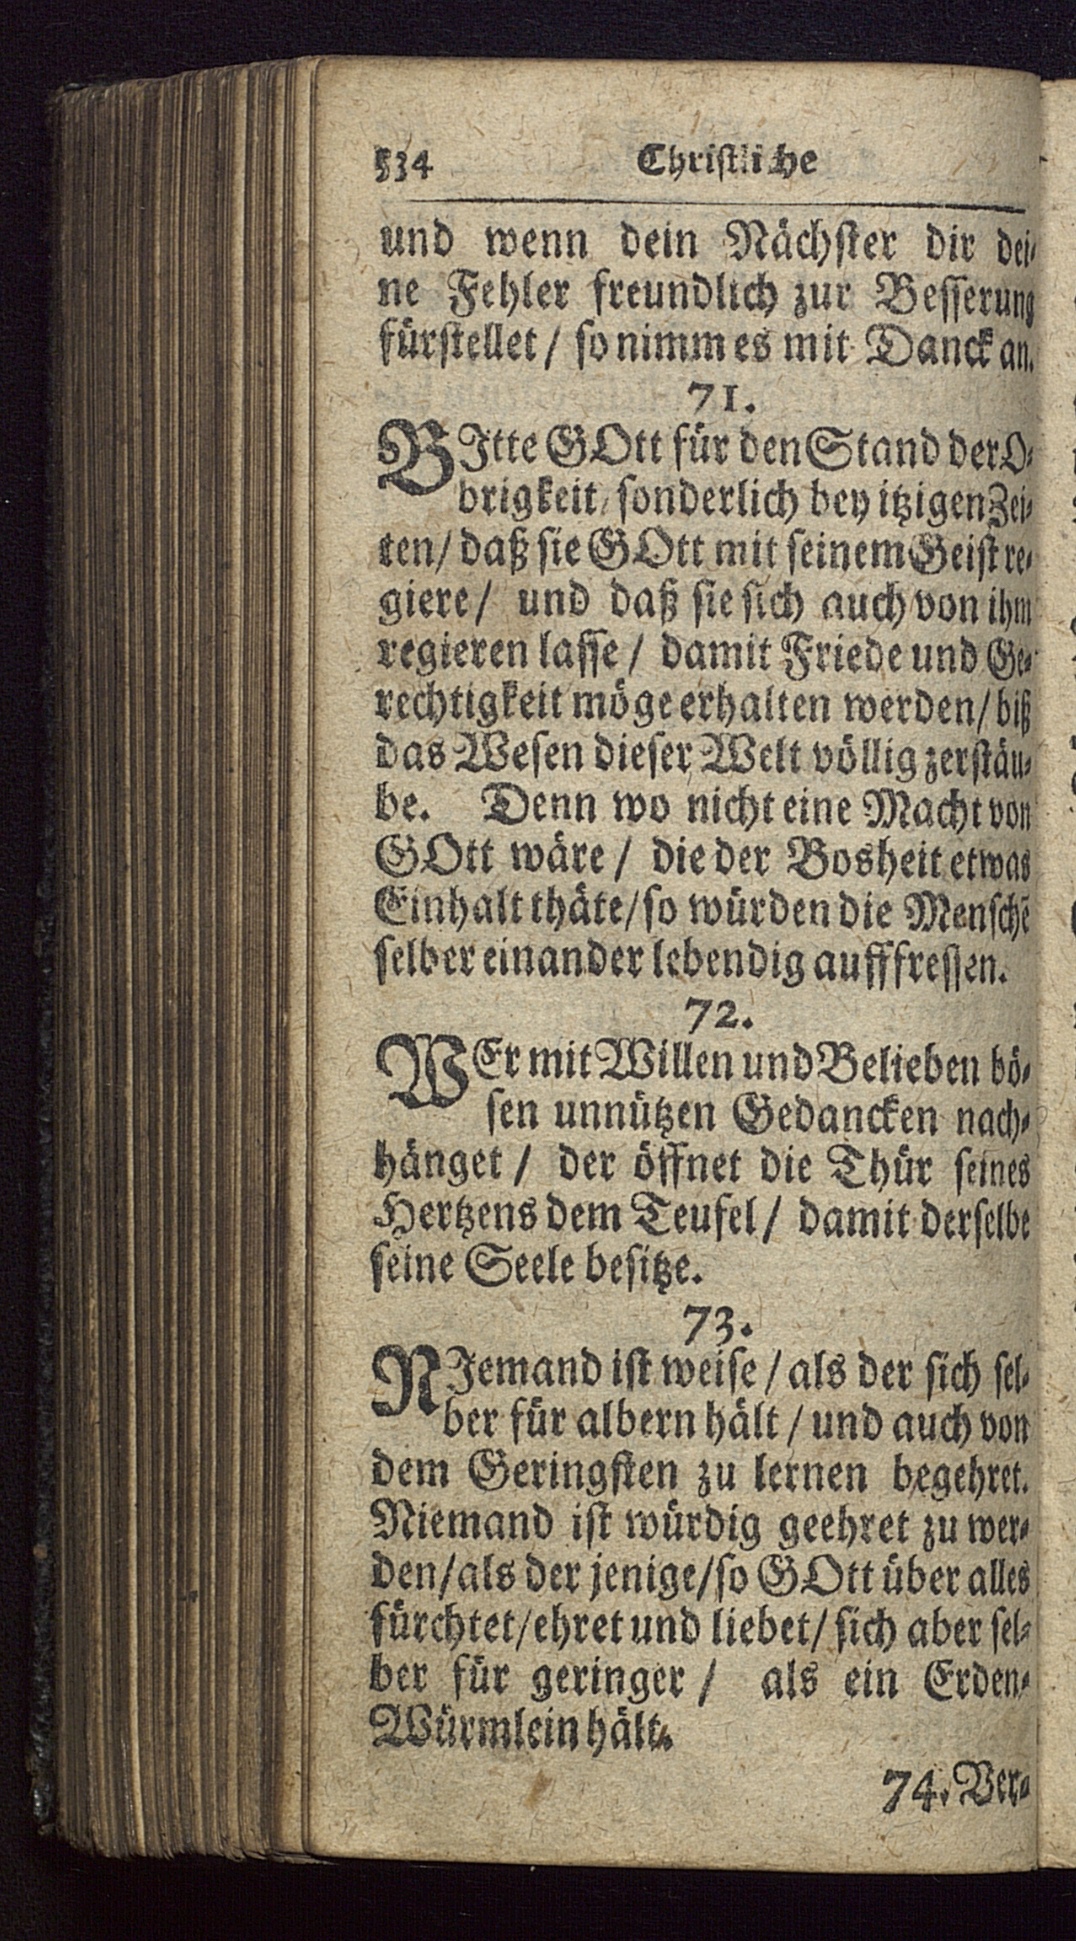 534 Christliche
und wenn dein Nächster dir dei-
ne Fehler freundlich zur Besserung
fürstellet / so nimm es mit Danck an.
71.
BItte GOtt für den Stand der O-
brigkeit, sonderlich bey itzigen Zei-
ten / daß sie GOtt mit seinem Geist re-
giere / und daß sie sich auch von ihm
regieren lasse / damit Friede und Ge-
rechtigkeit möge erhalten werden / biß
das Wesen dieser Welt völlig zerstäu-
be. Denn wo nicht eine Macht von
GOtt wäre / die der Bosheit etwas
Einhalt thäte / so würden die Menschē
selber einander lebendig aufffressen.
72.
WEr mit Willen und Belieben bö-
sen unnützen Gedancken nach-
hänget / der öffnet die Thür seines
Hertzens dem Teufel / damit derselbe
seine Seele besitze.
73.
NIemand ist weise / als der sich sel-
ber für albern hält / und auch von
dem Geringsten zu lernen begehret.
Niemand ist würdig geehret zu wer-
den / als der jenige / so GOtt über alles
fürchtet / ehret und liebet / sich aber sel-
ber für geringer / als ein Erden-
Würmlein hält.
74. Ver-